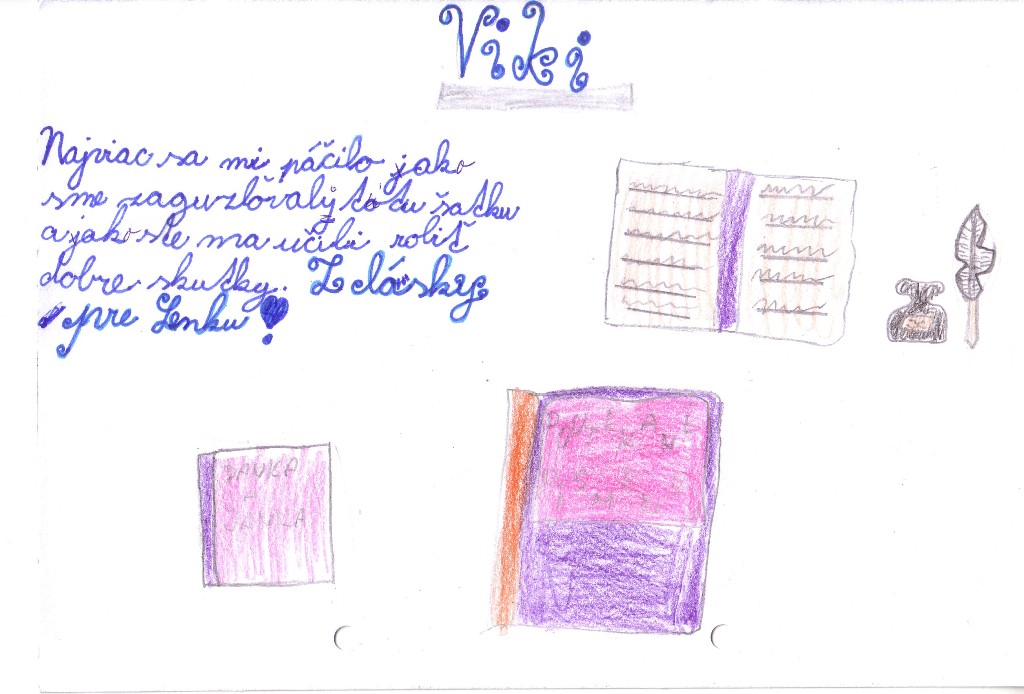 Viki
Najviac sa mi páčilo jako
sme zaguzlovaly totu šatku
a jakoste ma učili roliť
dobre skutky. Z lásky
pre Lenku!
DANKA
A
JANKA